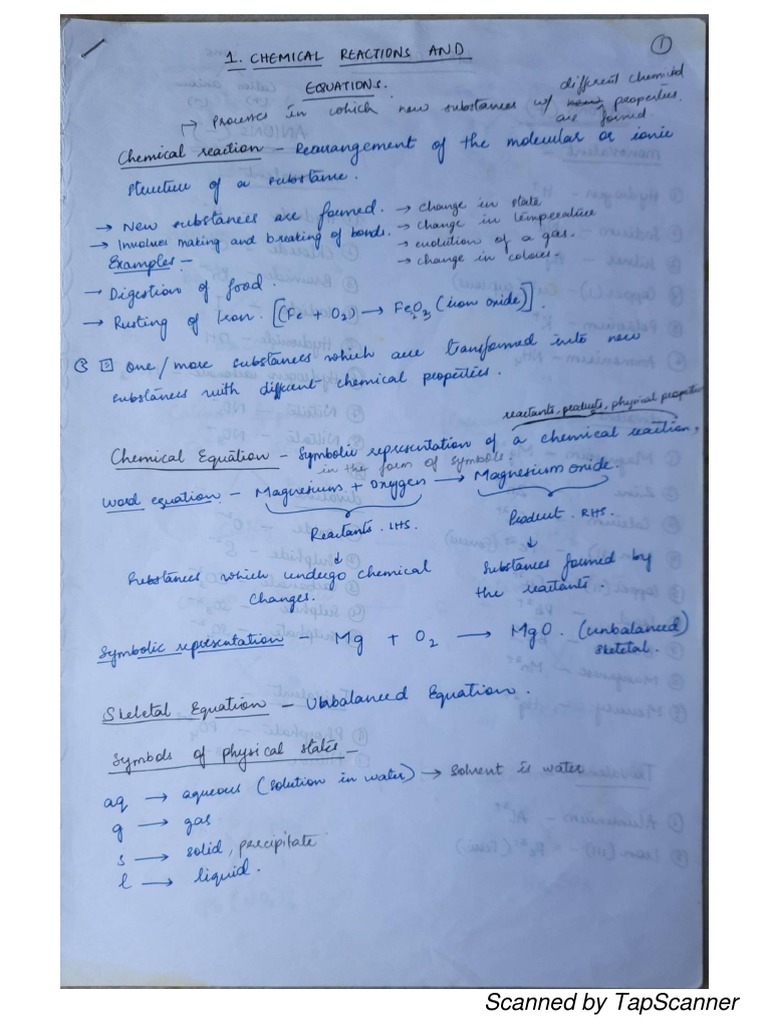 1. CHEMICAL REACTIONS AND
①
EQUATIONS.
different chemical
↱ Process in which new substances w/ properties.
are formed
Chemical reaction - Rearrangement of the molecular or ionic
structure of a substance.
→ New substances are formed. → change in state
→ Involves making and breaking of bonds. → change in temperature
→ evolution of a gas.
Examples - → change in colour.
→ Digestion of food.
→ Rusting of Iron. [(Fe + O₂) → Fe₂O₃ (iron oxide)].
One/more substances which are transformed into new
substances with different chemical properties.
reactants, products, physical properties
Chemical Equation - Symbolic representation of a chemical reaction,
in the form of symbols.
Word equation - Magnesium + Oxygen → Magnesium oxide.
Reactants. LHS. Product. RHS.
↓ ↓
Substances which undergo chemical Substances formed by
changes. the reactants.
Symbolic representation - Mg + O₂ → MgO. (unbalanced)
skeletal.
Skeletal Equation - Unbalanced Equation.
Symbols of physical states -
aq → aqueous (solution in water) → solvent is water
g → gas
s → solid, precipitate
l → liquid.
Scanned by TapScanner